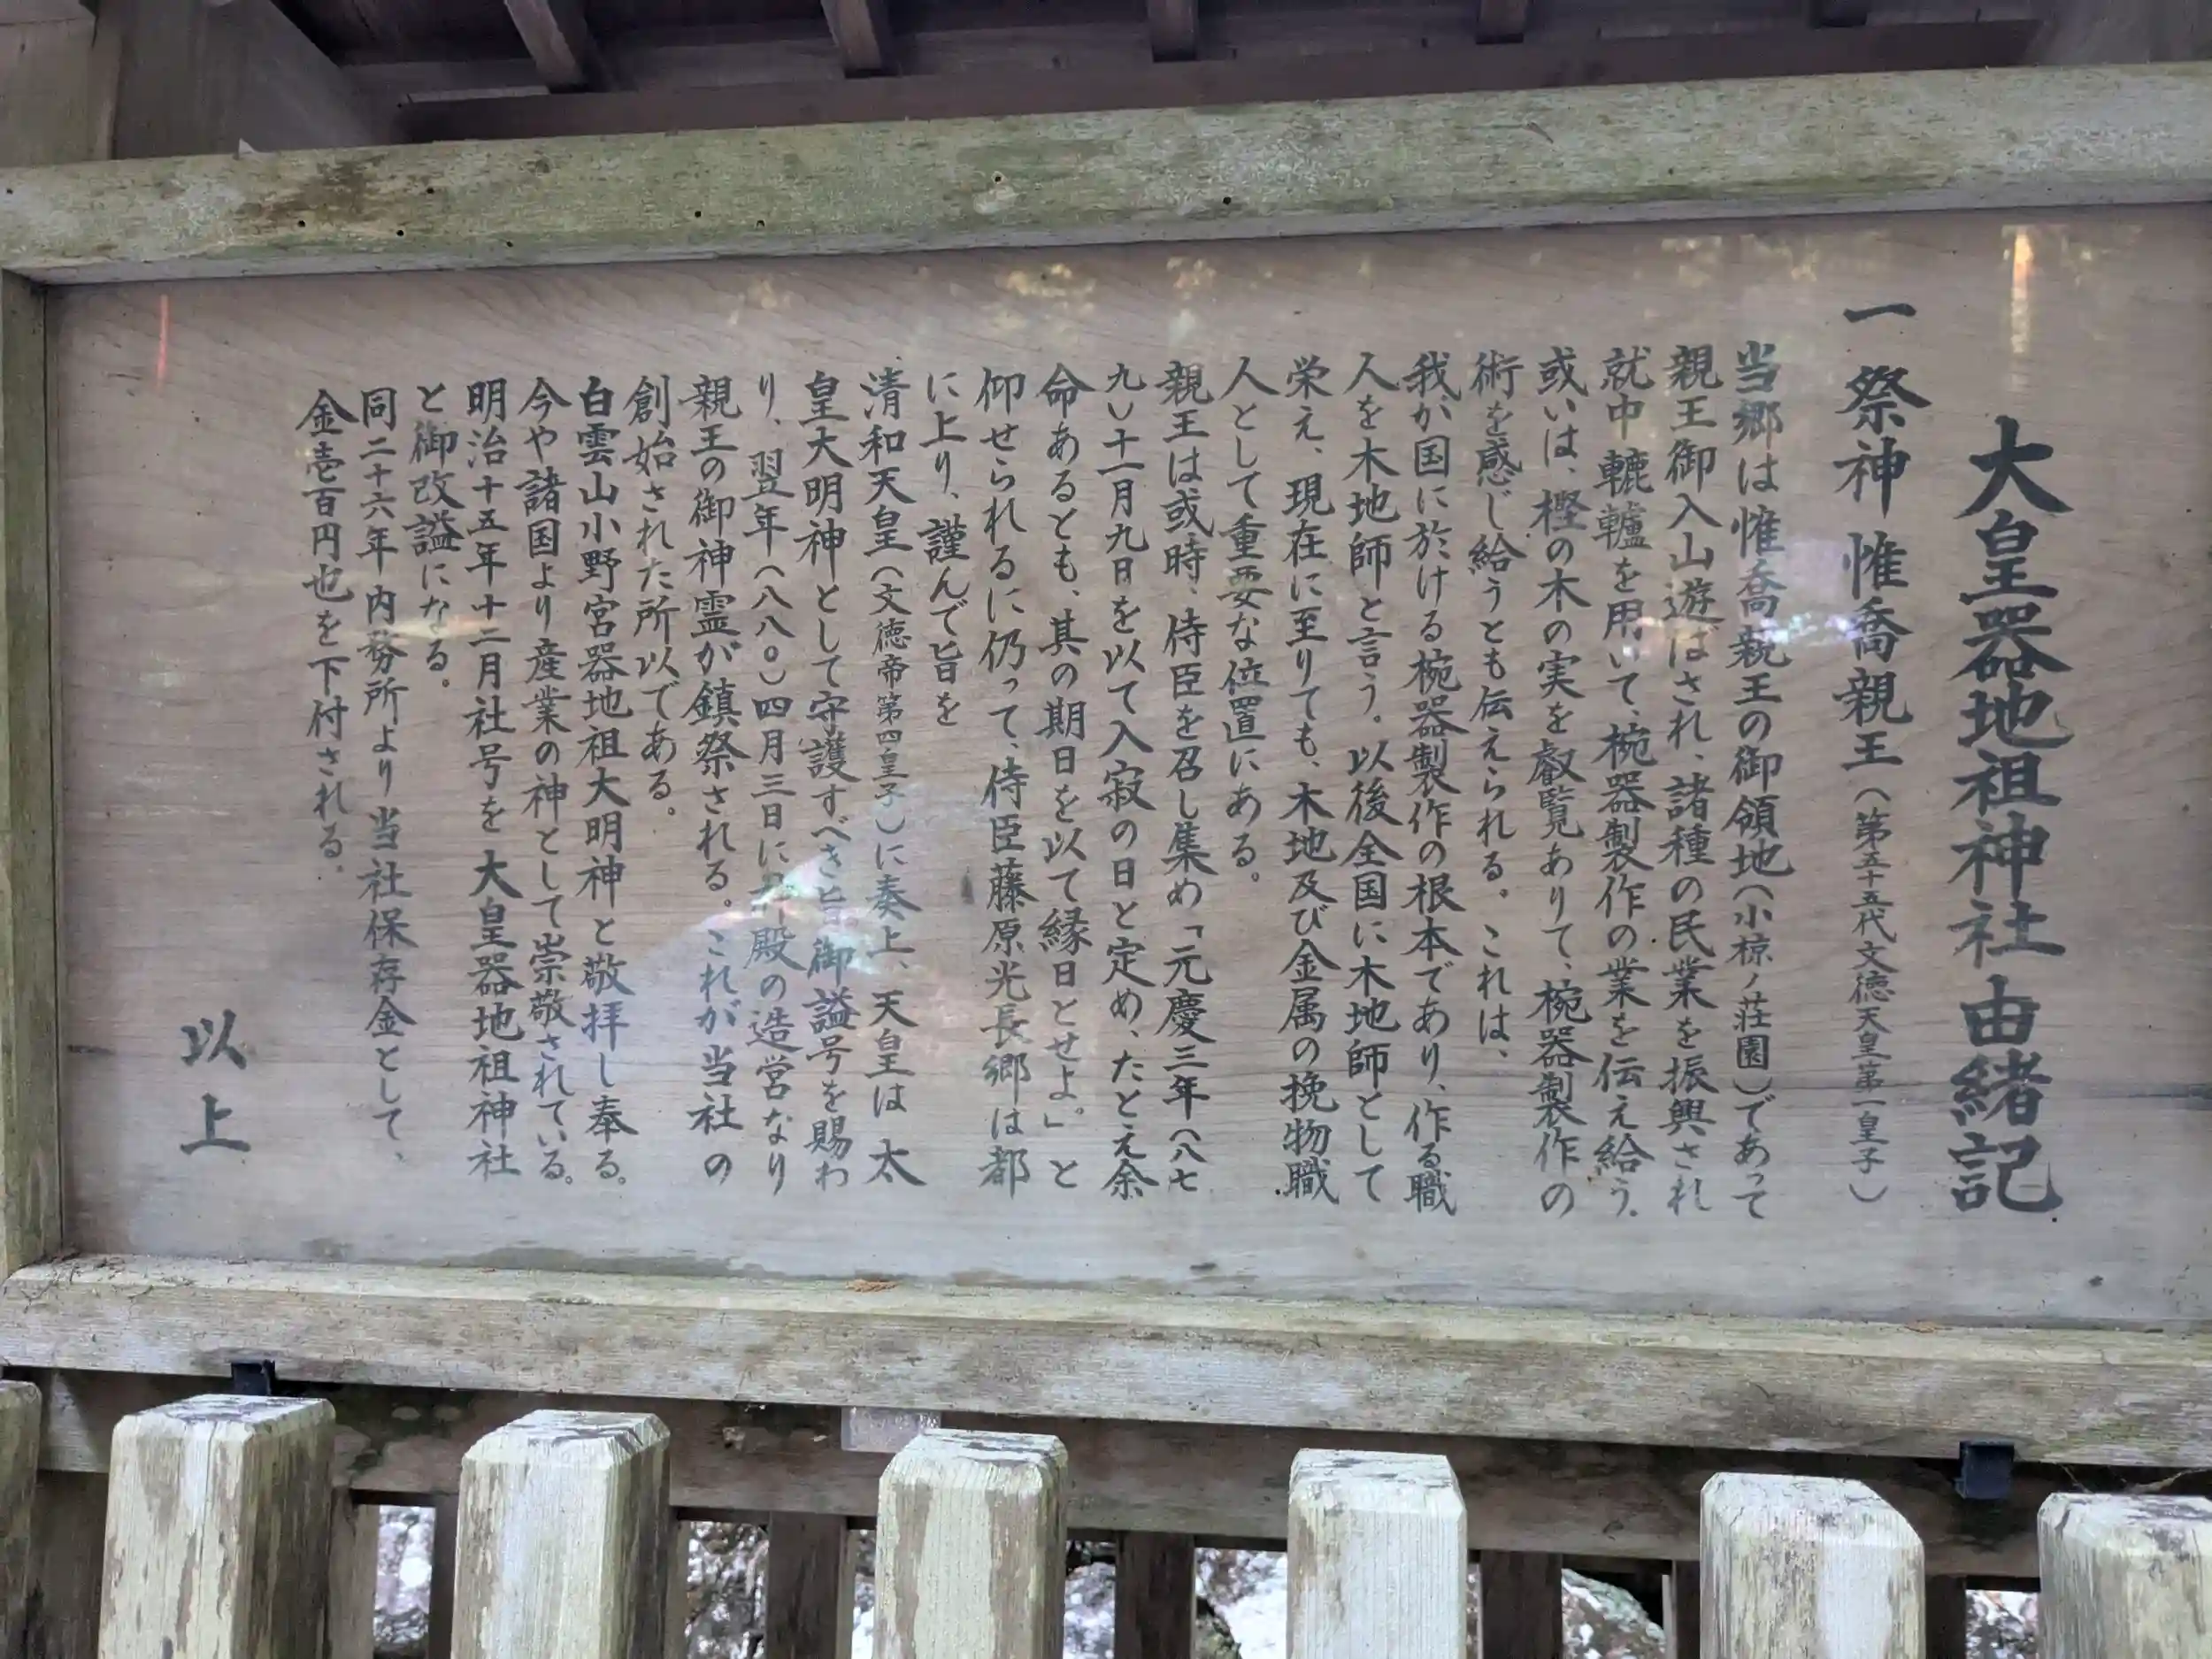 大皇器地祖神社由緒記
一祭神 惟喬親王（第五十五代文徳天皇第一皇子）
当郷は惟喬親王の御領地（小椋ノ荘園）であって
親王御入山遊ばされ、諸種の民業を振興され
就中轆轤を用いて、椀器製作の業を伝え給う。
或いは、樫の木の実を叡覧ありて、椀器製作の
術を感じ給うとも伝えられる。これは、
我が国に於ける椀器製作の根本であり、作る職
人を木地師と言う。以後全国に木地師として
栄え、現在に至りても、木地及び金属の挽物職
人として重要な位置にある。
親王は或時、侍臣を召し集め「元慶三年（八七
九）十一月九日を以て入寂の日と定め、たとえ余
命あるとも、其の期日を以て縁日とせよ。」と
仰せられるに仍って、侍臣藤原光長郷は都
に上り、謹んで旨を
清和天皇（文徳帝第四皇子）に奏上、天皇は太
皇大明神として守護すべき旨、御謚号を賜わ
り、翌年（八八〇）四月三日に 殿の造営なり
親王の御神霊が鎮祭される。これが当社の
創始された所以である。
白雲山小野宮器地祖大明神と敬拝し奉る。
今や諸国より産業の神として崇敬されている。
明治十五年十二月社号を大皇器地祖神社
と御改謚になる。
同二十六年内務所より当社保存金として、
金壱百円也を下付される。
以上